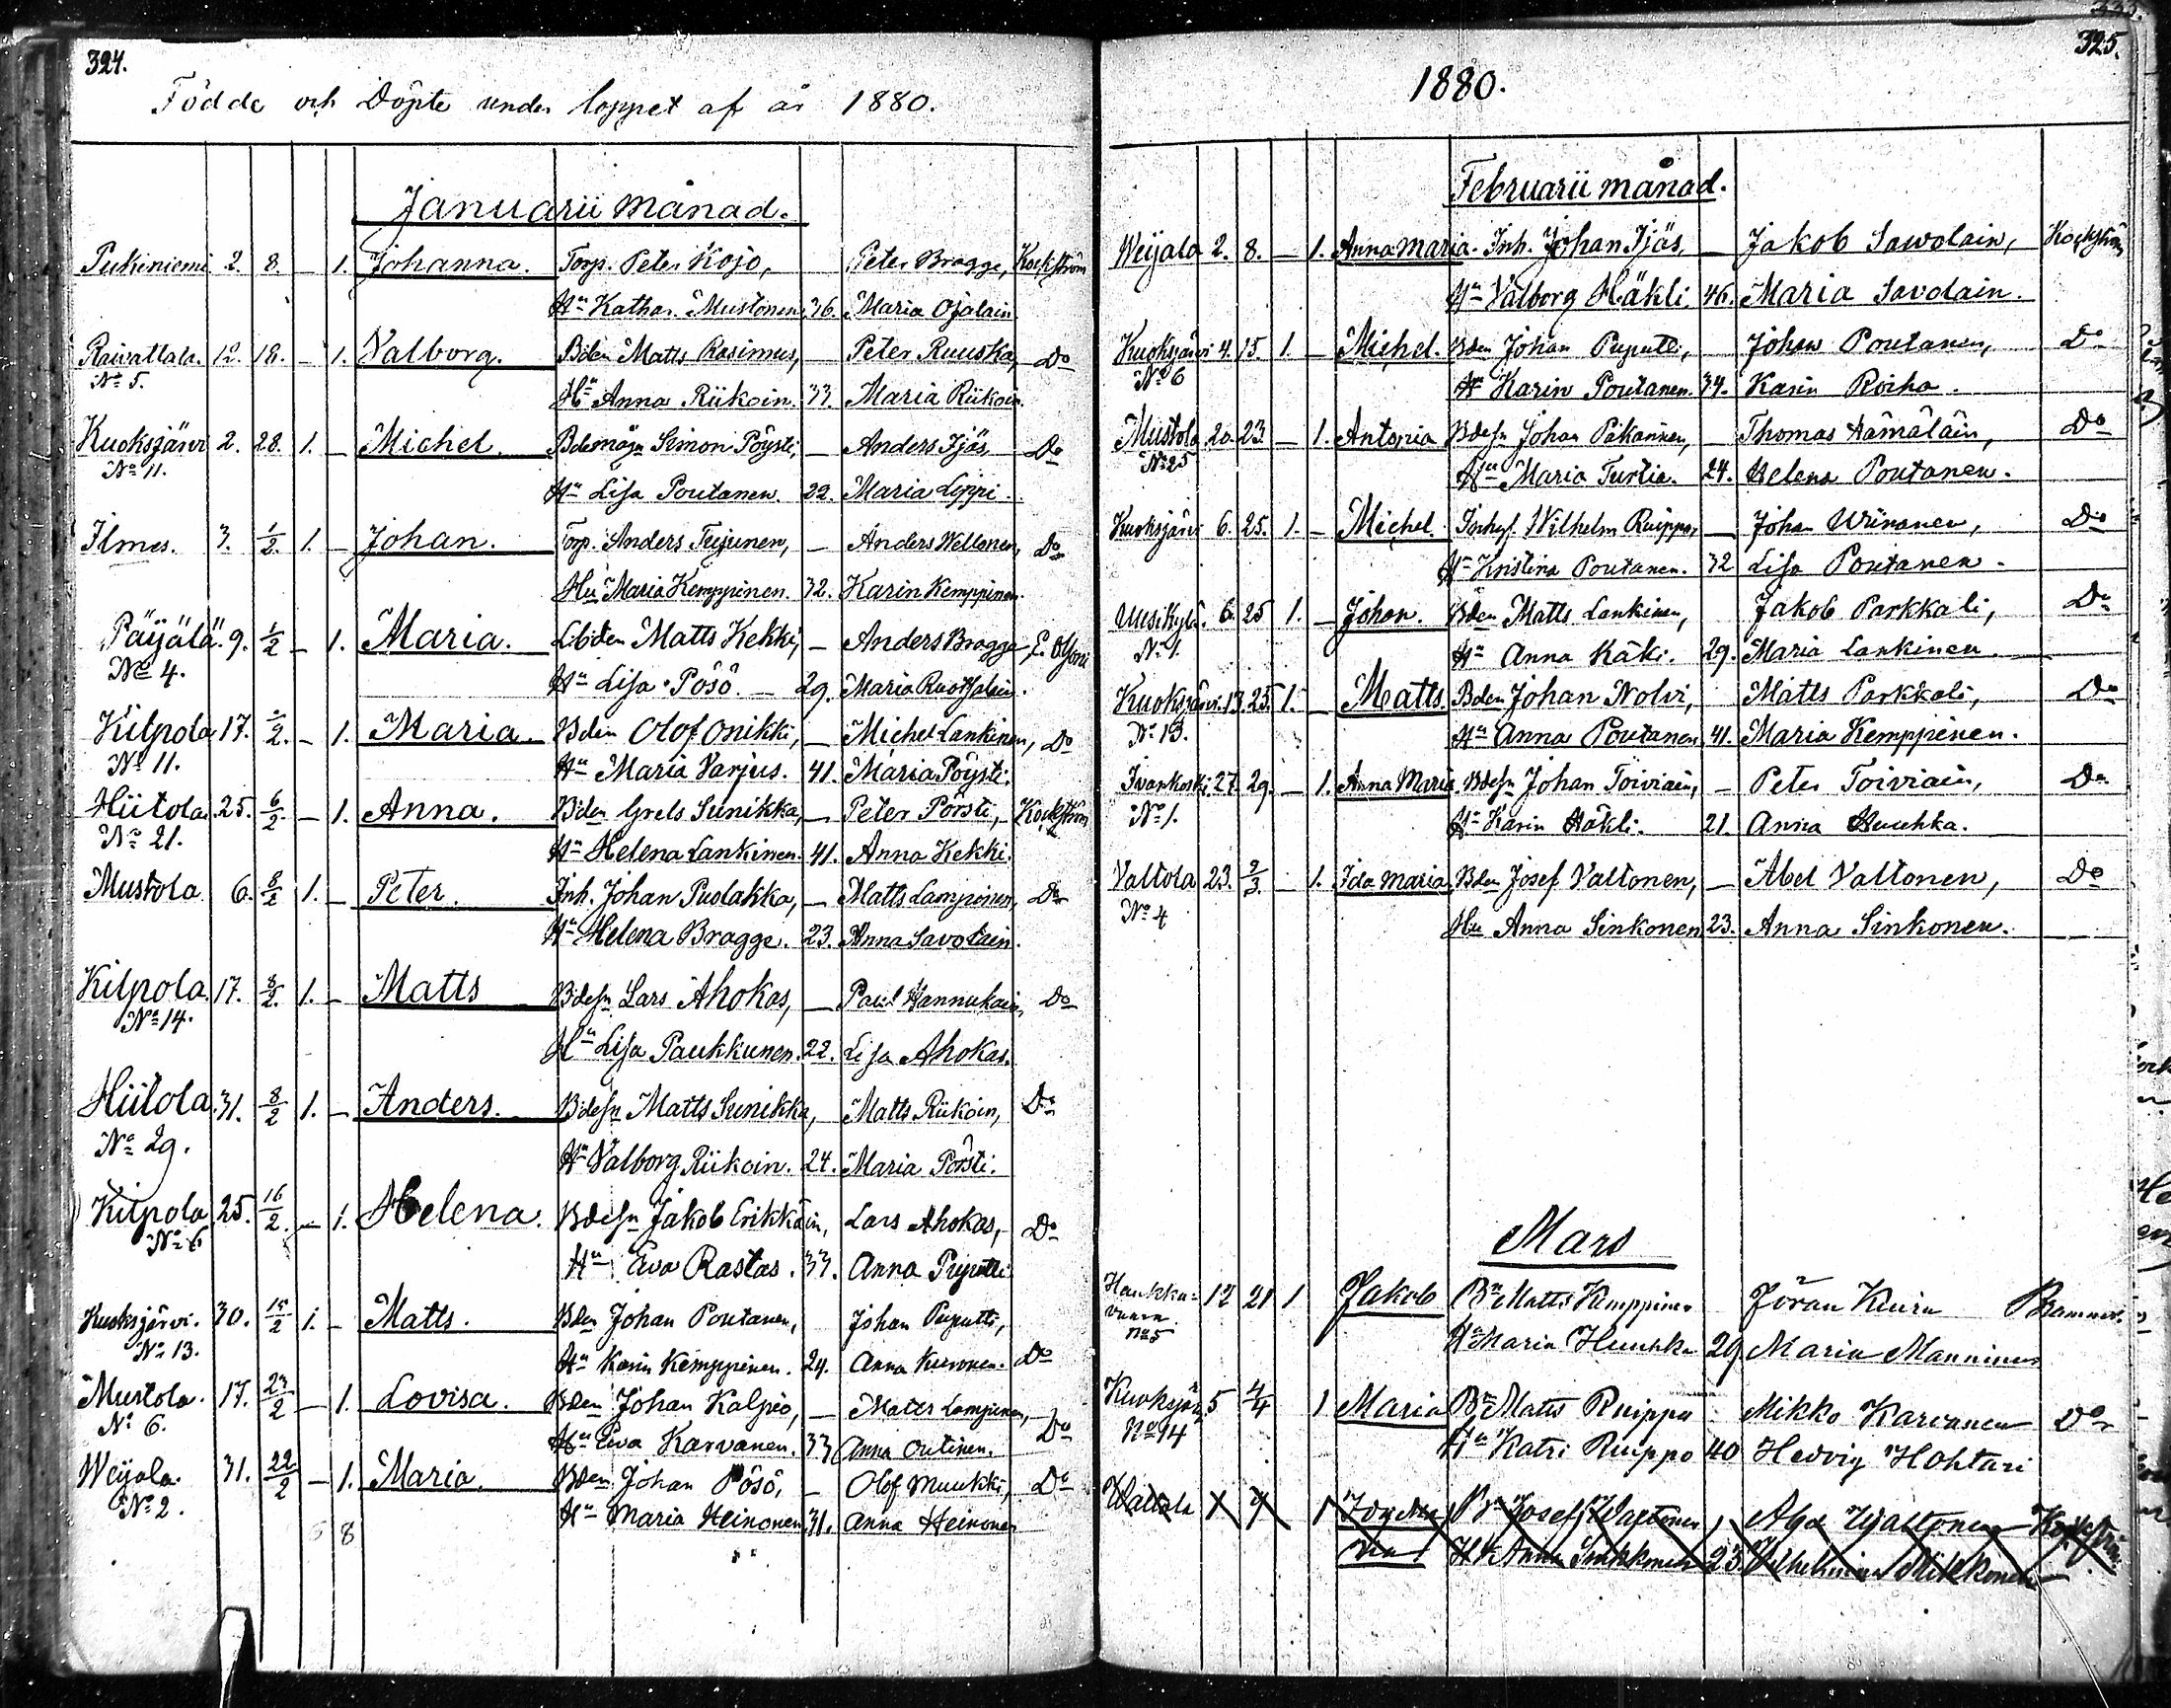 324.
Födde och Döpte under loppet af år 1880.
Januarii månad.
Pukiniemi 2. 8. — 1. Johanna. Torp. Peter Kojo, — Peter Bragge, Kockström
Hu Kathar. Mustonen 36. Maria Ojalain
Raivattala. 12. 18. — 1. Valborg. Bden Matts Rasimus, — Peter Ruuska, Do
No 5.
Hu Anna Riikoin. 33. Maria Riikoin.
Kuoksjärvi 2. 28. 1. — Michel. Bdemågn Simon Pöysti, — Anders Ijäs, Do
No 11.
Hu Lisa Poutanen 22. Maria Lippi.
Ilmes. 3. 1/2. 1. — Johan. Torp. Anders Teijunen, — Anders Weltonen, Do
Hu Maria Kemppinen. 32. Karin Kemppinen.
Päijälä. 9. 1/2 — 1. Maria. Matts Kekki, — Anders Bragge,
No 4.
Hu Lisa Pösö. — 29. Maria
Kilpola 17. 2/2. — 1. Maria. Bden Olof Onikki, — Michel Lankinen, Do
No 11.
Hu Maria Varjus. 41. Maria Pöysti.
Hiitola. 25. 6/2. — 1. Anna. Bden Grels Sunikka, — Peter Pörsti, Kockström
No 21.
Hu Helena Lankinen. 41. Anna Kekki.
Mustola 6. 8/2 1. — Peter. Inh. Johan Puolakka, — Matts Lamponen, Do
Hu Helena Bragge. 23. Anna Savolain.
Kilpola. 17. 8/2. 1. — Matts Bdesn Lars Ahokas, — Paul Hannukain, Do
No 14.
Hu Lisa Paukkunen. 22. Lisa Ahokas.
Hiitola. 31. 8/2 1. — Anders. Bdesn Matts Sunikka, Matts Riikoin, Do
No 29.
Hu Valborg Riikoin. 24. Maria Pörsti.
Kilpola 25. 16/2. — 1. Helena. Bdesn Jakob Erikkäin, Lars Ahokas, Do
No 6
Hu Eva Rastas. 33. Anna Puputti
Kuoksjärvi. 30. 15/2 1. — Matts. Bden Johan Poutanen, Johan Puputti,
No 13.
Hu Karin Kemppinen. 24. Anna Do
Mustola. 17. 22/2 — 1. Lovisa. Bden Johan Kalpio, — Matts Lamponen,
No 6.
Hu Eva Karvanen. 33 Anna Outinen. Do
Weijala. 31. 22/2 — 1. Maria. Bden Johan Pösö, — Olof Muukki, Do
No 2.
Hu Maria Heinonen 31. Anna Heinonen
8
325.
1880.
Februarii månad.
Weijala 2. 8. — 1. Anna Maria. Inh. Johan Ijäs, — Jakob Sawolain, Kockström
Hu Valborg Häkli. 46. Maria Savolain.
Kuoksjärvi 4. 15. 1. — Michel. Bden Johan Puputti, Johan Poutanen, Do
No 6
Hu Karin Poutanen. 34. Karin Roiha.
Mustola 20. 23. — 1. Antonia Bdesn Johan Pakarinen, — Thomas Hämäläin, Do
No 25
Hu Maria Turtia. 24. Helena Poutanen.
Kuoksjärvi 6. 25. 1. — Michel. Wilhelm Ruippo, — Johan Do
Hu Kristina Poutanen. 32 Lisa Poutanen.
Uusikylä. 6. 25 1. — Johan. Bden Matts Lankinen, Jakob Parkkali, Do
No 1.
Hu Anna Käki. 29. Maria Lankinen.
Kuoksjärvi. 13. 25. 1. — Matts. Bden Johan Nolvi, Matts Parkkali, Do
No 13.
Hu Anna Poutanen 41. Maria Kemppinen.
Ivankoski. 27. 29. — 1. Anna Maria. Bdesn Johan Toiviain, — Peter Toiviain, Do
No 1.
Hu Karin Häkli. 21. Anna Huuhka.
Valtola 23. 9/3. 1. Ida Maria Bden Josef Valtonen, — Abel Valtonen, Do
No 4
Hu Anna Sinkonen 23. Anna Sinkonen.
Mars
Haukka=
vaara 12 21 1 Jakob Bn Matts Kemppinen Jöran Kuira
No 5
Hu Maria Huuhka 29 Maria Manninen
Kuoksjär. 5 4/4 1 Maria Bn Matts Ruippo Mikko Karvanen Do
No 14
Hu Katri Ruippo 40 Hedvig Hohtari
Josef Waltonen, Abel Waltonen
Hu Anna Sinkkonen 23. Mikkonen